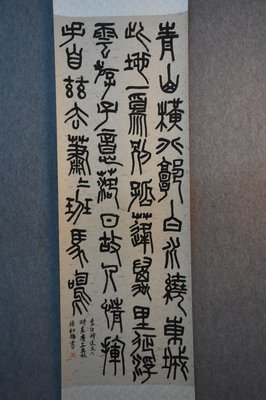 青山橫北郭白水繞東城
此地一為別孤蓬萬里征浮
雲游子意落日故人情揮
手自茲去蕭〻班馬鳴
李白詩送友人